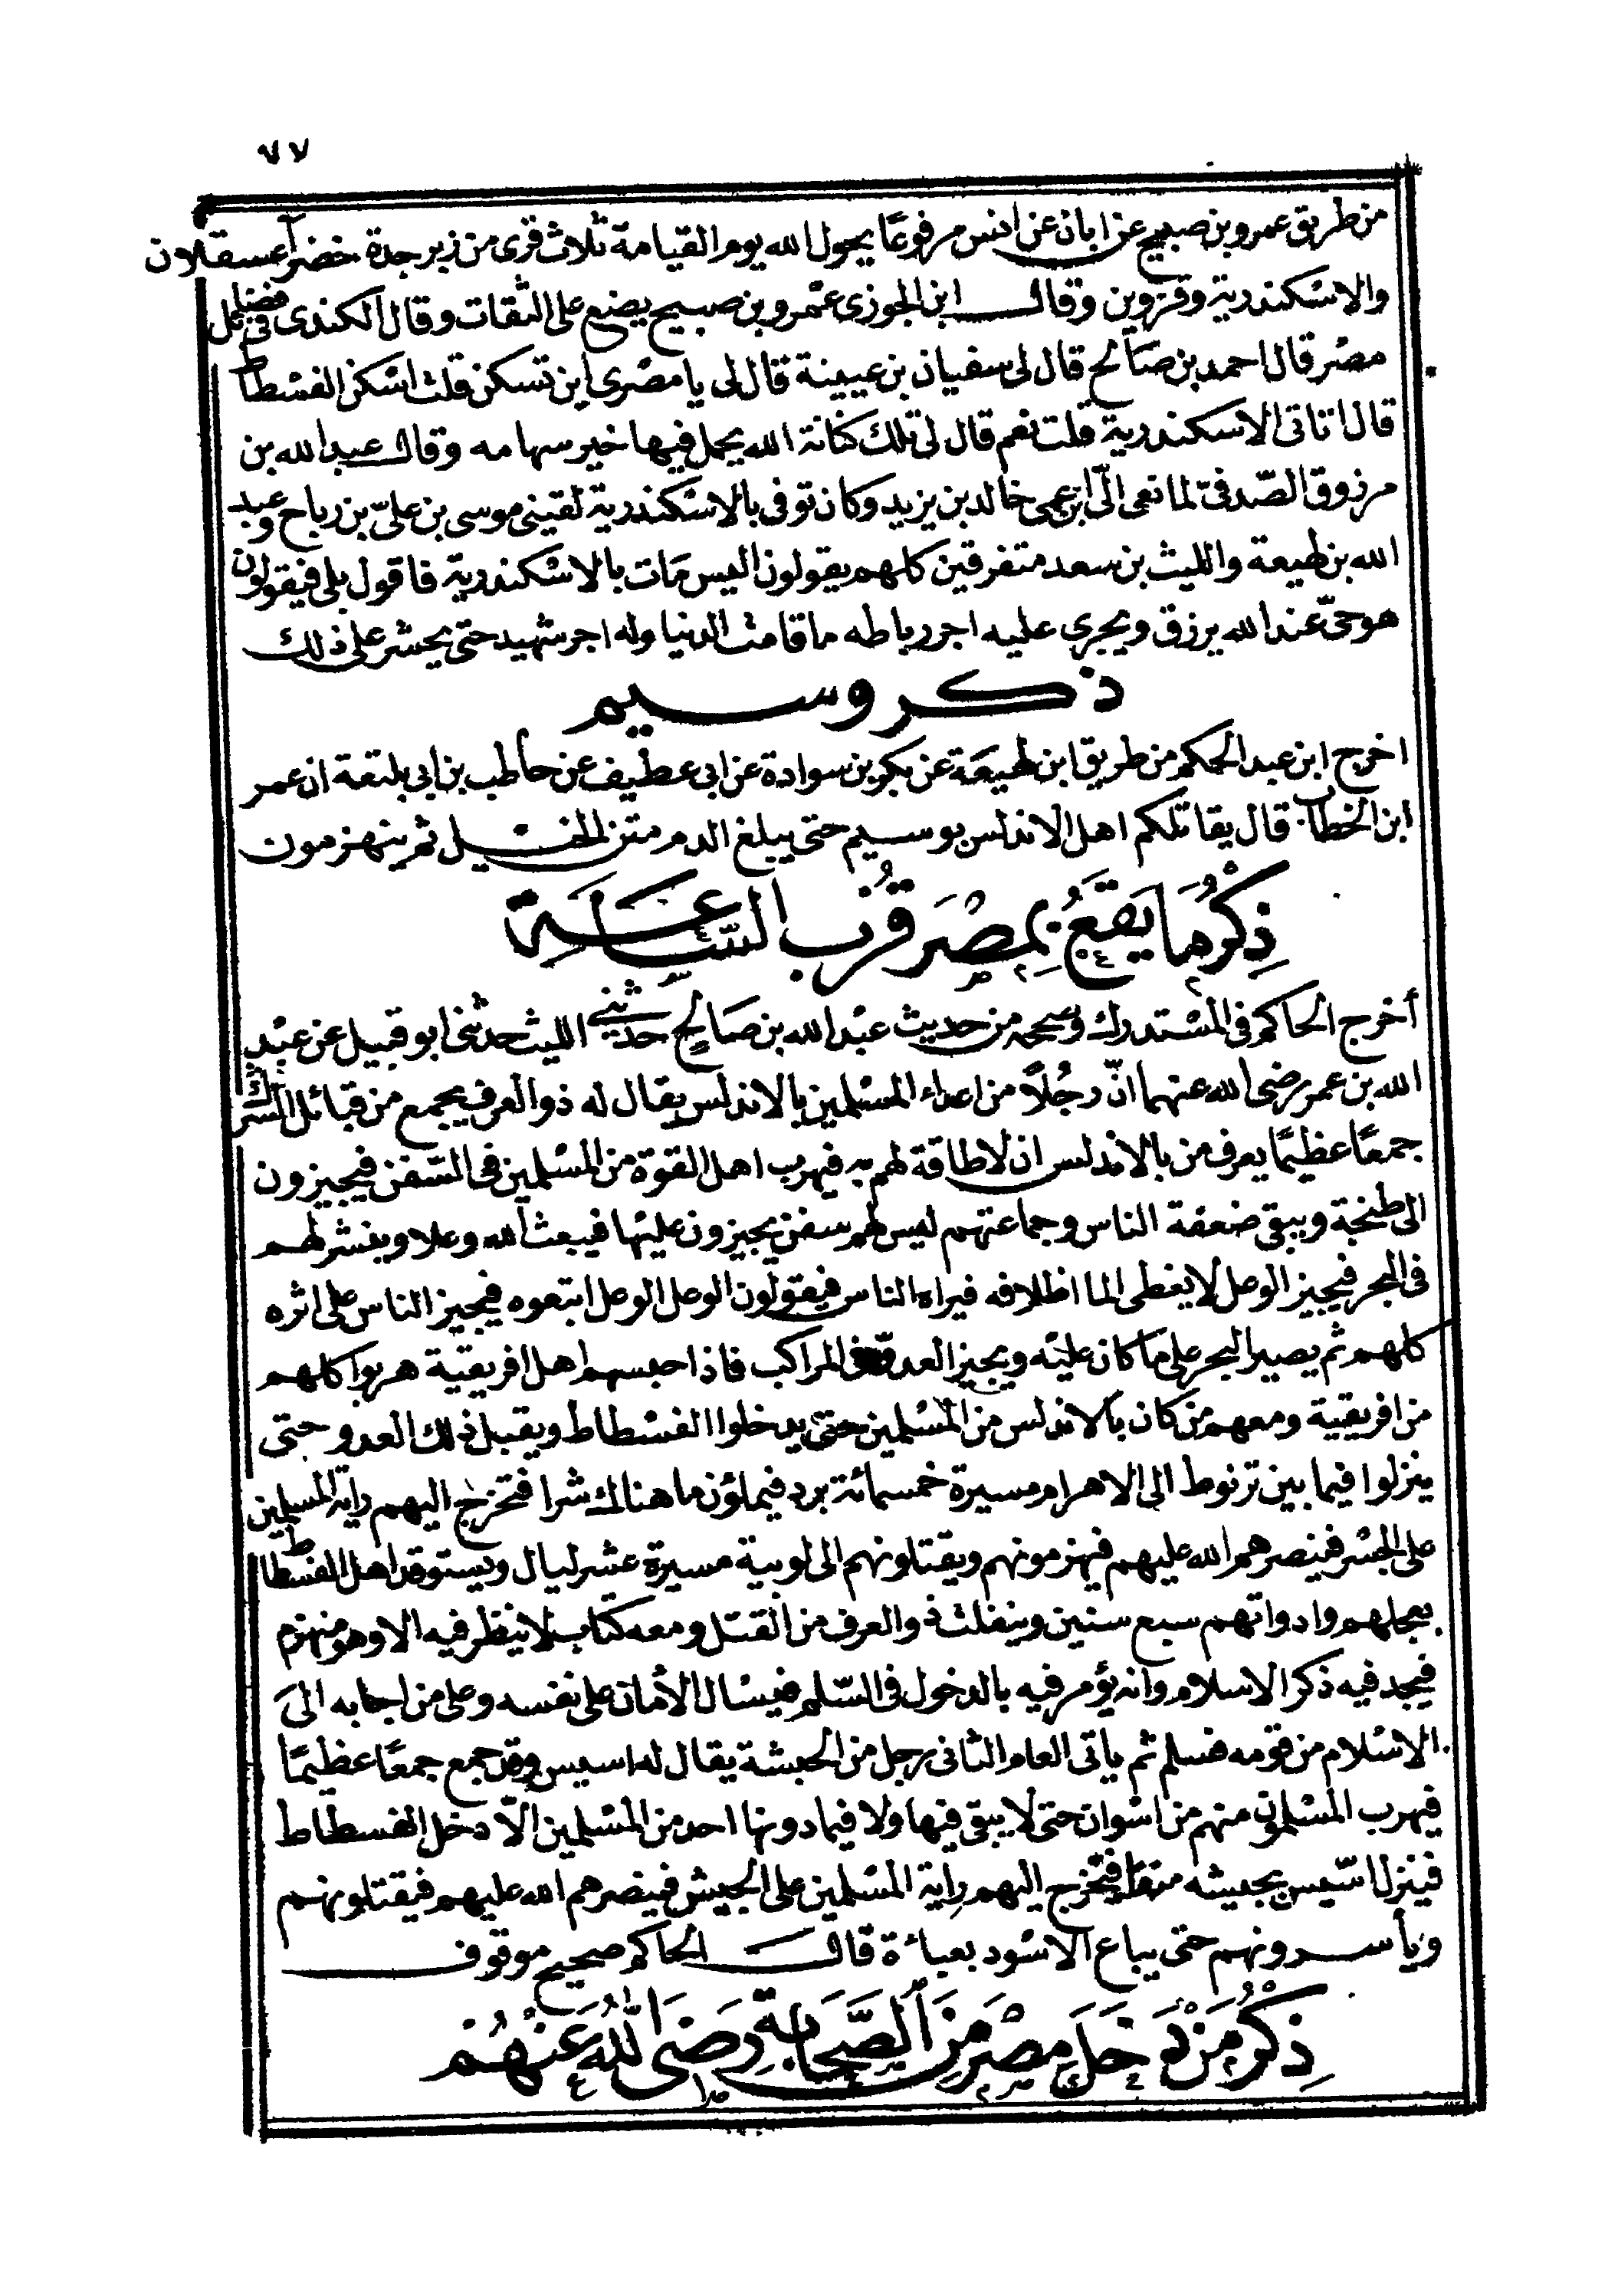 ٧٧
من طريق عمرو بن صبيح عن ابان عن انس مرفوعًا يحول الله يوم القيامة ثلاث قرى من زبرجدة خضرآ عسقلان
والاسكندرية وقزوين وقال ابن الجوزى عمرو بن صبيح يضع على الثقات وقال الكندى فى فضائل
مصر قال احمد بن صالح قال لى سفيان بن عيينة قال لى يا مصرى اين تسكن قلت اسكن الفسطاط
قال اتاتى الاسكندرية قلت نعم قال لى تلك كنانة الله يحمل فيها خير سهامه وقال عبد الله بن
مرزوق الصّدفىّ لما نعى الىّ ابن عمى خالد بن يزيد وكان توفى بالاسكندرية لقينى موسى بن علىّ بن رباح وعبد
الله بن لهيعة والليث بن سعد متفرقين كلهم يقولون اليس مات بالاسكندرية فاقول بلى فيقولون
هو حىّ عند الله يرزق ويجرى عليه اجر رباطه ما قامت الدنيا وله اجر شهيد حتى يحشر على ذلك
ذكر وسيم
اخرج ابن عبد الحكم من طريق ابن لهيعة عن بكر بن سوادة عن ابى عطيف عن حاطب بن ابى بلتعة ان عمر
ابن الخطاب قال يقاتلكم اهل الاندلس بوسيم حتى يبلغ الدم متن الخيل ثم ينهزمون
ذِكْرُ مَا يَقَعُ بِمِصْرَ قُرْبَ السَّاعَةِ
أخرج الحاكم فى المستدرك وصححه من حديث عبْد الله بن صالح حدثنى الليث حدثنى ابو قبيل عن عبْد
الله بن عمر رضى الله عنهما انّ رجُلاً من اعداء المسْلمين بالاندلس يقال له ذو العرف يجمع من قبائل الشرك
جمعًا عظيمًا يعرف من بالاندلس ان لا طاقة لهم به فيهرب اهل القوة من المسْلمين فى السّفن فيجيزون
الى طنجة ويبقى ضعفة الناس وجماعتهم ليس لهم سفن يجيزون عليْها فيبعث الله وعلا وينشر لهم
فى البحر فيجيز الوعل لا يغطى الما اظلافه فيراه الناس فيقولون الوعل الوعل اتبعوه فيجيز الناس على اثره
كلهم ثم يصير البحر على ما كان عليْه ويجيز العدوّ فى المراكب فاذا احسهم اهل افريقية هربوا كلهم
من افريقية ومعهم من كان بالاندلس من المسْلمين حتى يدخلوا الفسْطاط ويقبل ذلك العدو حتى
ينزلوا فيما بين ترنوط الى الاهرام مسيرة خمسمائة برد فيملؤن ما هنالك شرا فتخرج اليهم راية المسلمين
على الجسْر فينصرهم الله عليهم فيهزمونهم ويقتلونهم الى لوبية مسيرة عشر ليال ويستوقد اهل الفسطاط
بعجلهم وادواتهم سبع سنين وينفلت ذو العرف من القتل ومعه كتاب لا ينظر فيه الا وهو منهزم
فيجد فيه ذكر الاسلام وانه يؤمر فيه بالدخول فى السّلم فيسْال الأمان على نفسه وعلى من اجابه الى
الاسْلام من قومه فسلم ثم ياتى العام الثانى رجل من الحبشة يقال له اسيس وقد جمع جمعًا عظيمًا
فيهرب المسْلمون منهم من اسْوان حتى لا يبقى فيها ولا فيما دونها احد من المسْلمين الاّ دخل الفسطاط
فينزل اسّيس بجيشه منف فتخرج اليهم راية المسْلمين على الجيش فينصرهم الله عليهم فيقتلونهم
ويأسرونهم حتى يباع الاسْود بعباءة قال الحاكم صحيح موقوف
ذِكْرُ مَنْ دَخَلَ مِصْرَ مِنَ الصَّحَابَةِ رَضَى اللهُ عَنْهُمْ